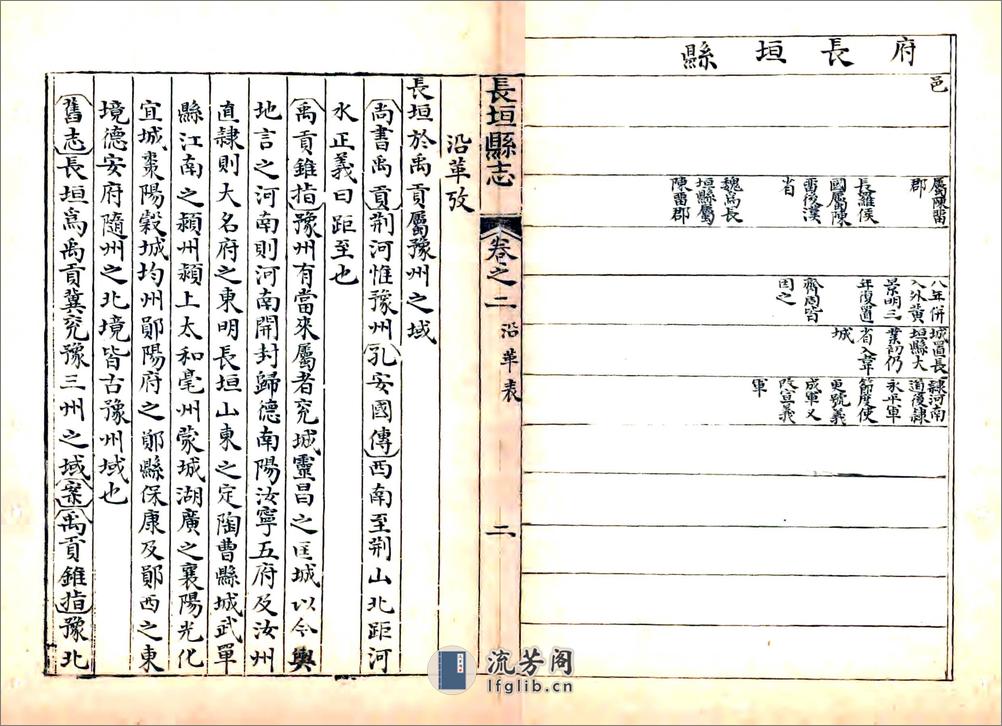 府長垣縣
邑
屬陳留
郡
長羅侯
國屬陳
留後漢
省
魏爲長
垣縣屬
陳留郡
八年併
入外黃
景明三
年復置
齊周皆
因之
城置長
垣縣大
業初仍
省入韋
城
隸河南
道後隸
永平軍
節度使
更號義
成軍又
改宣義
軍
長垣縣志
卷之二
沿革表
二
沿革攷
長垣於禹貢屬豫州之域
尚書禹貢荆河惟豫州孔安國傳西南至荆山北距河
水正義曰距至也
禹貢錐指豫州有當來屬者兖城靈昌之匡城以今輿
地言之河南則河南開封歸德南陽汝寧五府及汝州
直隸則大名府之東明長垣山東之定陶曹縣城武單
縣江南之潁州潁上太和亳州蒙城湖廣之襄陽光化
宜城棗陽穀城均州鄖陽府之鄖縣保康及鄖西之東
境德安府隨州之北境皆古豫州域也
舊志長垣爲禹貢冀兖豫三州之域案禹貢錐指豫北
流芳阁
lfglib.cn